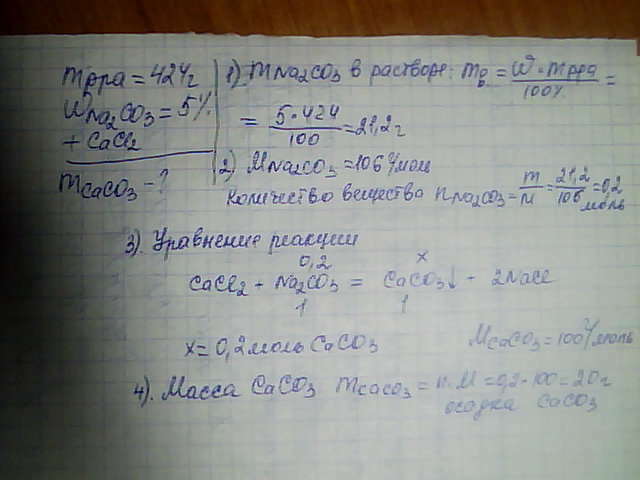 mрра = 424г
WNa2CO3 = 5%
+ CaCl2
mCaCO3 - ?
1). mNa2CO3 в растворе: mв = W · mрра / 100% =
= 5 · 424 / 100 = 21,2г
2) MNa2CO3 = 106 г/моль
количество вещества nNa2CO3 = m / M = 21,2 / 106 = 0,2 моль
3). Уравнение реакции
0,2 x
CaCl2 + Na2CO3 = CaCO3↓ + 2NaCl
1 1
x = 0,2 моль CaCO3 MCaCO3 = 100 г/моль
4). Масса CaCO3 mCaCO3 = n · M = 0,2 · 100 = 20г
осадка CaCO3